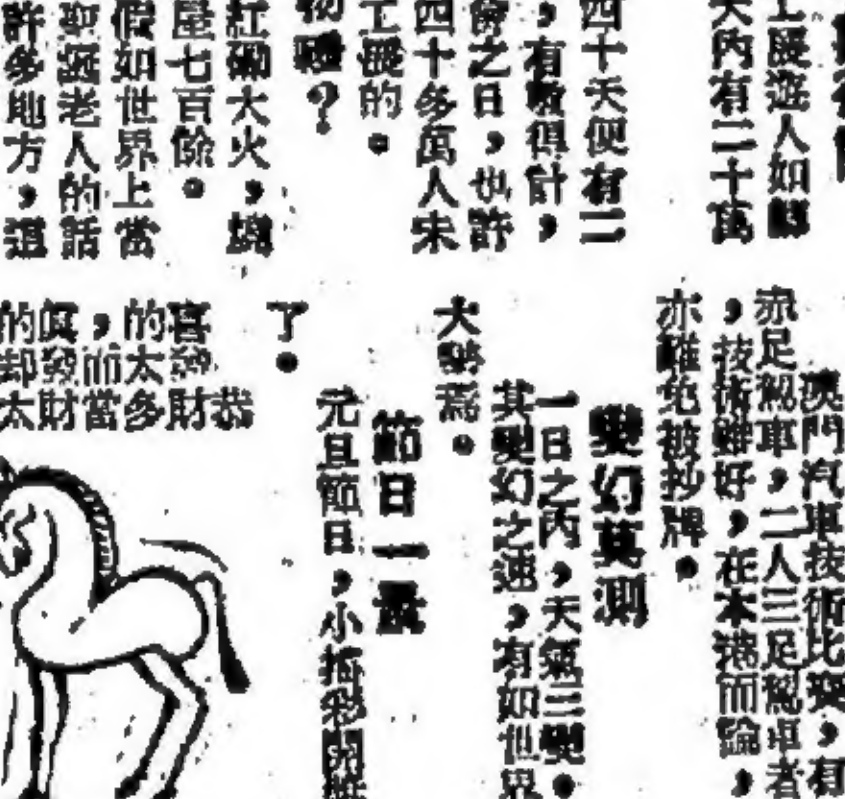 工展遊人如
天內有二十萬
四十天便有二
，有
會之日，也許
四十多萬人未
工展的。
？
紅磡大火，
屋七百餘。
假如世界上當
老人的話
許多地方，這
澳門汽車技術比賽，有
赤足駕車，二人三足駕車者
，技術雖好，在本港而論，
亦難免被抄牌。
變幻莫測
一日之內，天氣三變。
其變幻之速，有如世界
大勢焉。
節日一景
元旦節日，小搖彩開
了。
恭
喜發財
的太多
，而當
真發財
的却太